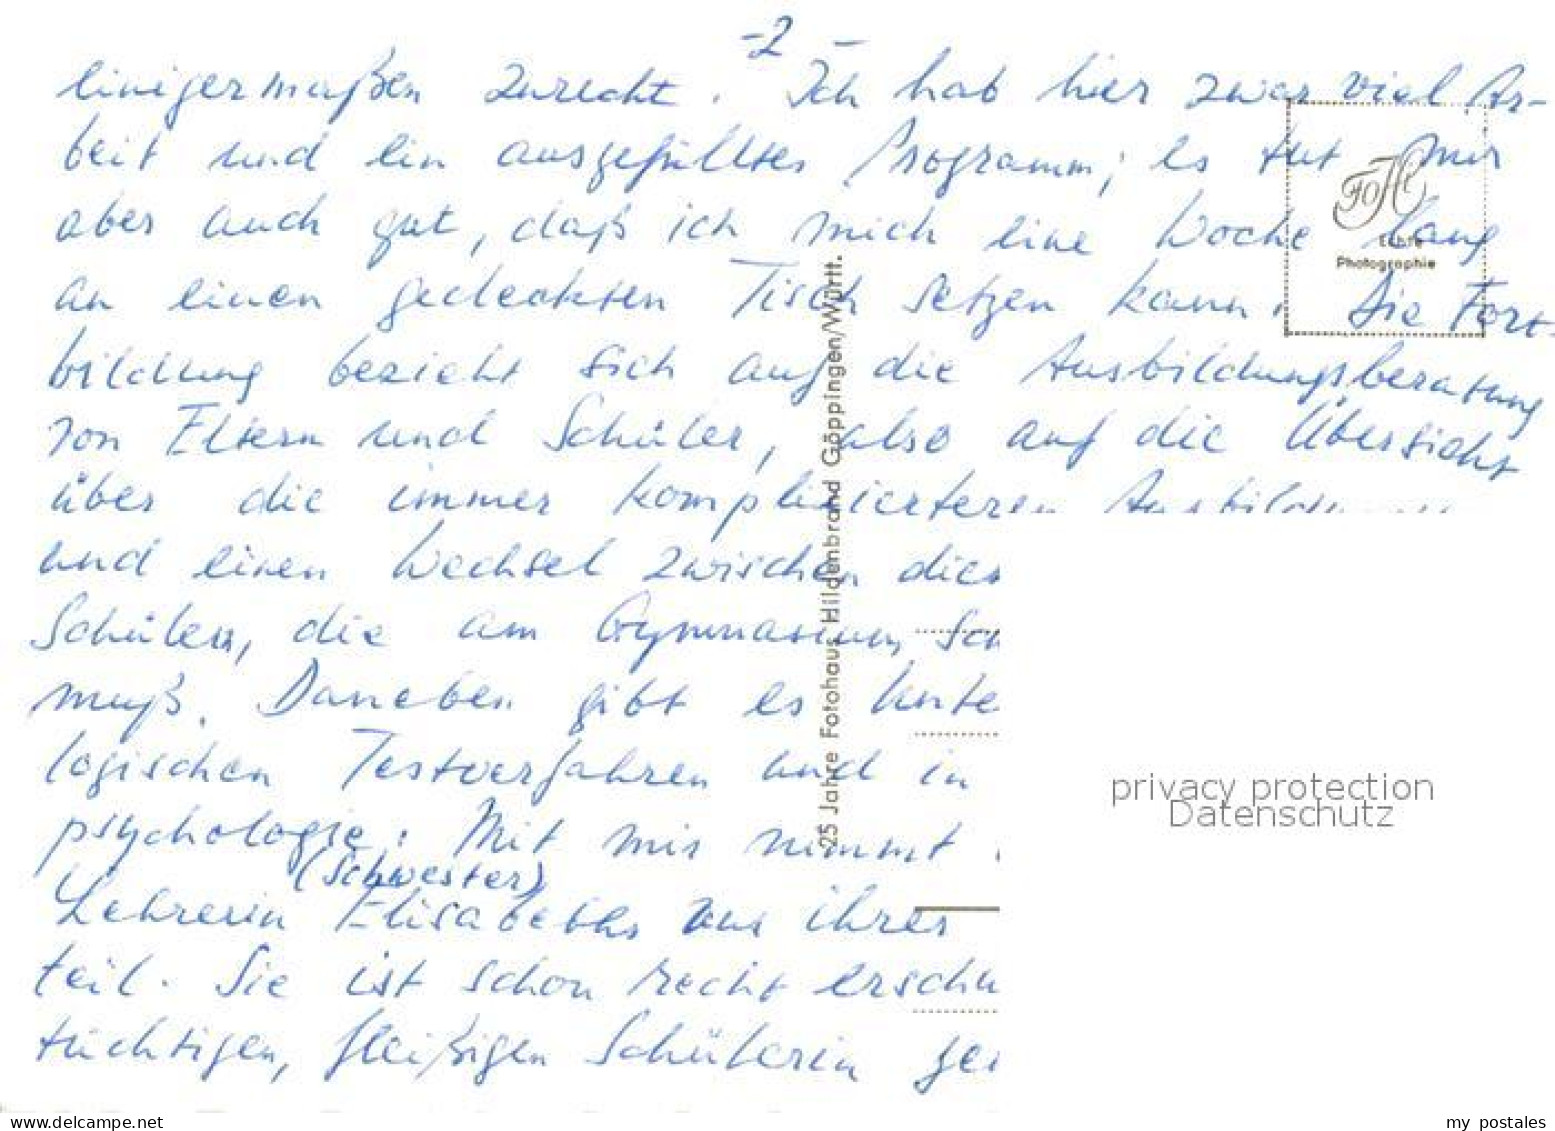 -2-
einigermaßen zurecht. Ich hab hier zwar viel Ar-
beit und ein ausgefülltes Programm; es tut mir
aber auch gut, daß ich mich eine Woche lang
an einen gedeckten Tisch setzen kann. Die Fort-
bildung bezieht sich auf die Ausbildungsberatung
von Eltern und Schüler, also auf die Übersicht
über die immer komplizierteren
und einen Wechsel zwischen
Schülern, die am Gymnasium
muß. Daneben gibt es
logischen Testverfahren und in
psychologie. Mit mir nimmt
(Schwester)
Lehrerin Elisabeths aus ihrer
teil. Sie ist schon recht
tüchtigen, fleißigen Schülerin
FOHI
Echte
Photographie
25 Jahre Fotohaus Hildenbrand Göppingen/Württ.
privacy protection
Datenschutz
www.delcampe.net
my_postales